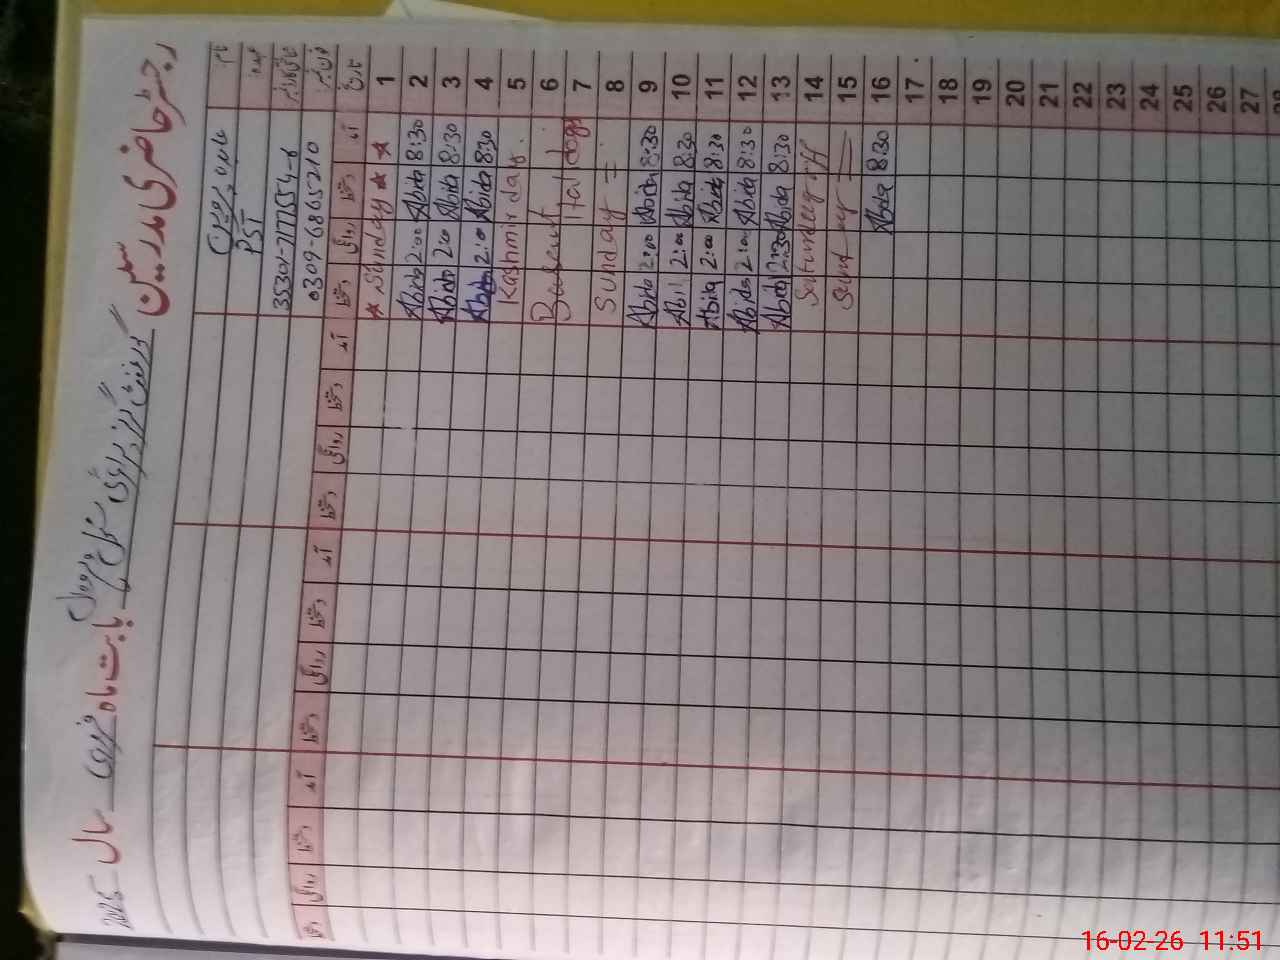 رجسٹر حاضری مدرسین گورنمنٹ گرلز پرائمری سکول
بابت ماہ فروری سال 2025
نام عابدہ پروین
عہدہ PST
شناختی کارڈ نمبر
فون نمبر 0309-6865210
تاریخ آمد دستخط روانگی دستخط آمد دستخط روانگی دستخط آمد دستخط روانگی دستخط آمد دستخط روانگی دستخط
1 ★ ★ Sunday ★
2 8:30 Abida 2:00 Abida
3 8:30 Abida 2:00 Abida
4 8:30 Abida 2:00 Abida
5 Kashmir day.
6 Basant
7 Haldays
8 Sunday =
9 8:30 Abida 2:00 Abida
10 8:30 Abida 2:00 Abida
11 8:30 Abida 2:00 Abida
12 8:30 Abida 2:00 Abida
13 8:30 Abida 2:30 Abida
14 Saturday off
15 Sunday =
16 8:30 Abida
17
18
19
20
21
22
23
24
25
26
27
28
16-02-26 11:51